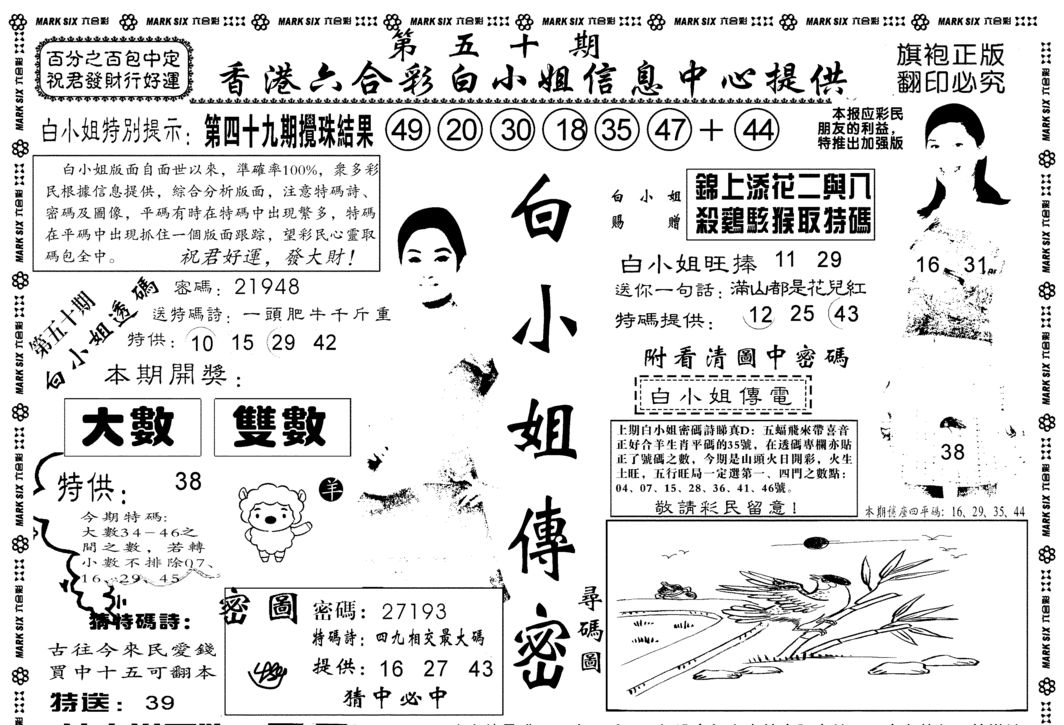 MARK SIX 六合彩 MARK SIX 六合彩 MARK SIX 六合彩 MARK SIX 六合彩 MARK SIX 六合彩 MARK SIX 六合彩 MARK SIX 六合彩 MARK SIX 六合彩
百分之百包中定
祝君發財行好運
第五十期
香港六合彩白小姐信息中心提供
旗袍正版
翻印必究
白小姐特別提示:
第四十九期攪珠結果 49 20 30 18 35 47 + 44
本报应彩民
朋友的利益,
特推出加强版
白小姐版面自面世以來，準確率100%，衆多彩
民根據信息提供，綜合分析版面，注意特碼詩、
密碼及圖像，平碼有時在特碼中出現繁多，特碼
在平碼中出現抓住一個版面跟踪，望彩民心靈取
碼包全中。 祝君好運，發大財！
第五十期
白小姐透碼
密碼: 21948
送特碼詩: 一頭肥牛千斤重
特供: 10 15 29 42
本期開獎:
大數 雙數
特供: 38
今期特碼:
大數34-46之
間之數，若轉
小數不排除07、
16、29、45
羊
猜特碼詩:
古往今來民愛錢
買中十五可翻本
特送: 39
密圖
密碼: 27193
特碼詩: 四九相交最大碼
提供: 16 27 43
猜中必中
白小姐傳密
白小姐
賜贈
錦上添花二與八
殺鷄駭猴取特碼
白小姐旺捧 11 29
送你一句話: 滿山都是花兒紅
特碼提供: 12 25 43
附看清圖中密碼
白小姐傳電
上期白小姐密碼詩睇真D: 五蝠飛來帶喜音
正好合羊生肖平碼的35號，在透碼專欄亦貼
正了號碼之數，今期是山頭火日開彩，火生
土旺，五行旺局一定選第一、四門之數點:
04、07、15、28、36、41、46號。
敬請彩民留意！
16 31
38
本期舊座四平碼: 16、29、35、44
尋碼圖